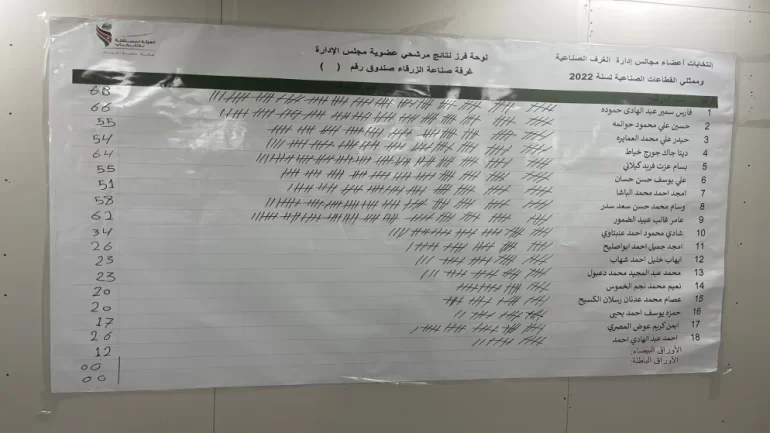 الهيئة المستقلة
للانتخاب
إنتخابات أعضاء مجالس إدارة الغرف الصناعية
وممثلي القطاعات الصناعية لسنة 2022
لوحة فرز نتائج مرشحي عضوية مجلس الإدارة
غرفة صناعة الزرقاء صندوق رقم ( )
1 فارس سمير عبد الهادي حموده 68
2 حسين علي محمود حواتمه 66
3 حيدر علي محمد العمايره 55
4 دينا جاك جورج خياط 54
5 بسام عزت فريد كيلاني 64
6 علي يوسف حسن حسان 55
7 امجد احمد محمد الباشا 51
8 وسام محمد حسن سعد سدر 58
9 عامر غالب عبيد الضمور 62
10 شادي محمود احمد عبتاوي 34
11 امجد جميل احمد ابواصليح 26
12 ايهاب خليل احمد شهاب 23
13 محمد عبد المجيد محمد دعبول 23
14 نعيم محمد نجم الخموس 20
15 عصام محمد عدنان رسلان الكسيح 20
16 حمزه يوسف احمد يحيى 17
17 ايمن كريم عوض المصري 26
18 احمد عبد الهادي احمد 12
الأوراق البيضاء: 00
الأوراق الباطلة: 00